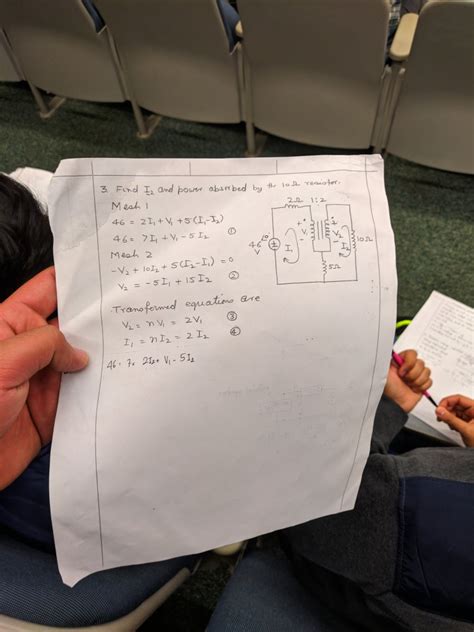 3. Find I₂ and power absorbed by the 10Ω resistor.
Mesh 1
46 = 2I₁+V₁+5(I₁-I₂)
46 = 7I₁+V₁-5I₂ ①
Mesh 2
-V₂+10I₂+5(I₂-I₁) = 0
V₂ = -5I₁+15I₂ ②
Transformed equations are
V₂ = nV₁ = 2V₁ ③
I₁ = nI₂ = 2I₂ ④
46 = 7× 2I₂+V₁-5I₂
2Ω 1:2
V₁
I₁
V₂
I₂
10Ω
5Ω